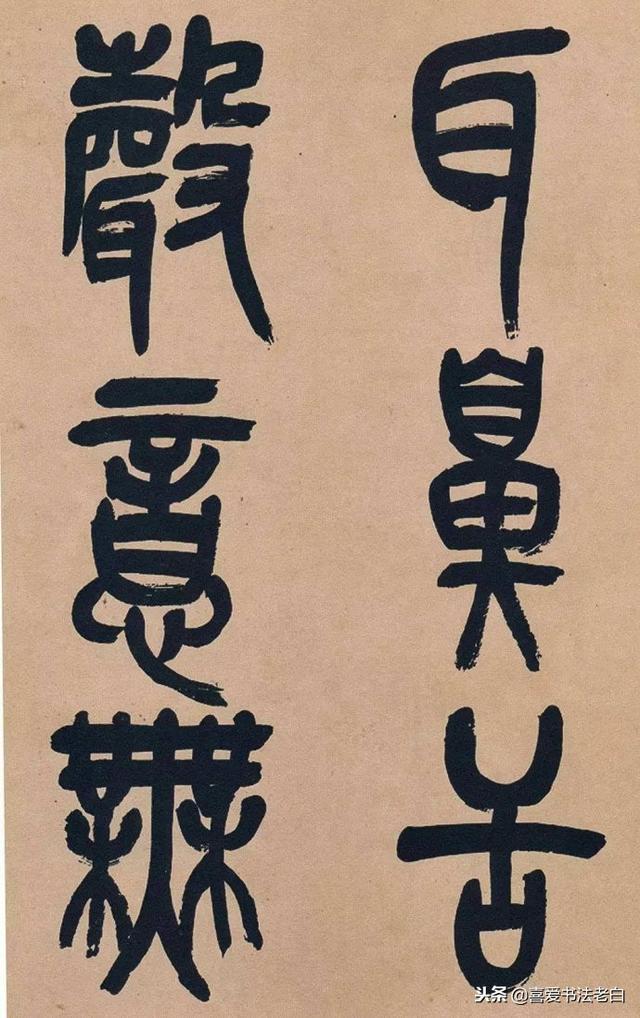 耳鼻舌
聲意無
头条 @喜爱书法老白